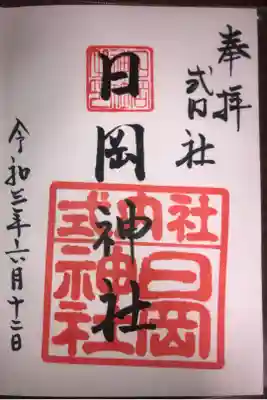 奉拝
式内社
日岡神社
令和三年六月十二日
式内社
日岡神社